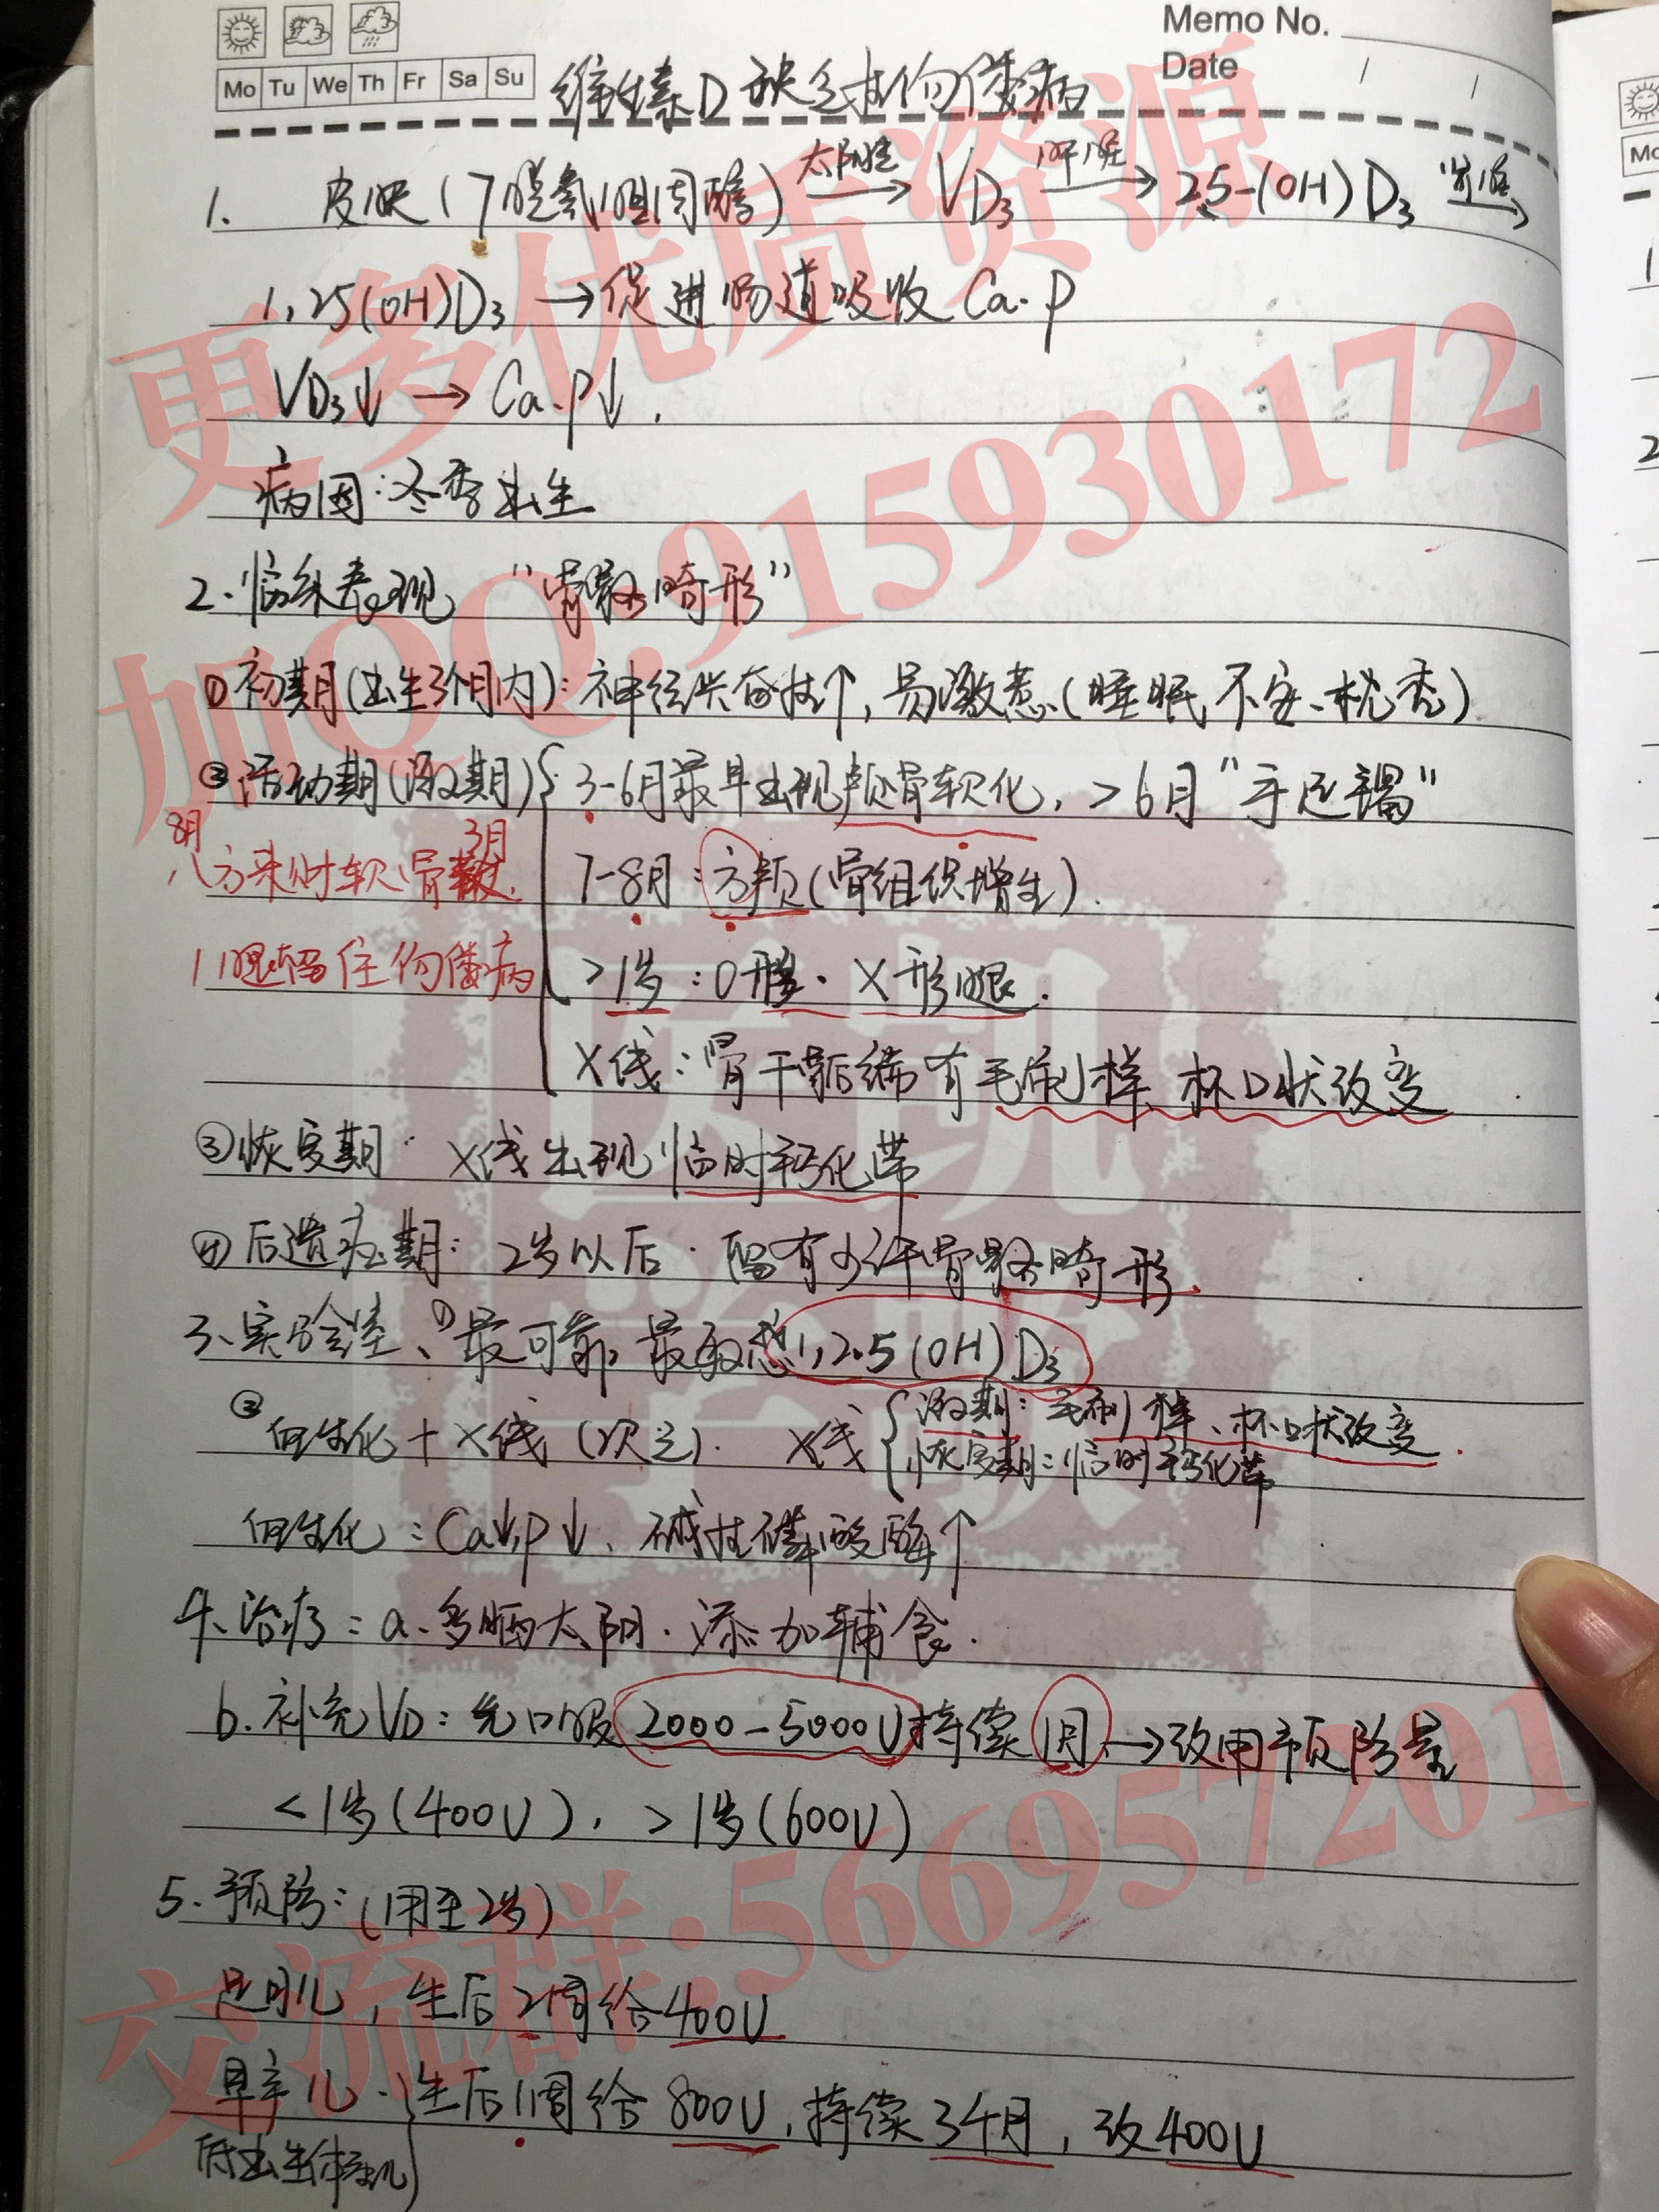 Memo No.
Mo Tu We Th Fr Sa Su
Date / /
维生素D缺乏性佝偻病
1. 皮肤(7脱氢胆固醇) 太阳 → VD3 肝脏 → 25-(OH)D3 肾脏 →
1,25(OH)D3 → 促进肠道吸收 Ca.P
VD3↓ → Ca.P↓.
病因:冬季出生
2.临床表现 "骨骼畸形"
①初期(出生3个月内):神经兴奋性↑,易激惹(睡眠不安、枕秃)
②活动期(激期) 3-6月最早出现颅骨软化,>6月"手足镯"
8月 3月
八方来财软骨
7-8月:方颅(骨组织增生).
1腿镯住佝偻病
>1岁:O形腿.X形腿.
X线:骨干骺端有毛刷样、杯口状改变
③恢复期 X线出现临时钙化带
④后遗症期:2岁以后.留有少许骨骼畸形.
3、实验室、①最可靠,最敏感1,25(OH)D3
②血生化+X线(次之). X线 激期:毛刷样、杯口状改变.
恢复期:临时钙化带
血生化:Ca↓,P↓、碱性磷酸酶↑
4、治疗:a.多晒太阳.添加辅食.
b.补充VD:先口服2000-5000U持续1月→改用预防量
<1岁(400U),>1岁(600U)
5.预防:(用至2岁)
足月儿,生后2周给400U
早产儿. 生后1周给800U,持续3个月,改400U
低出生体重儿
更多优质资源
加QQ.915930172
医凯
学颐
交流群:566957201